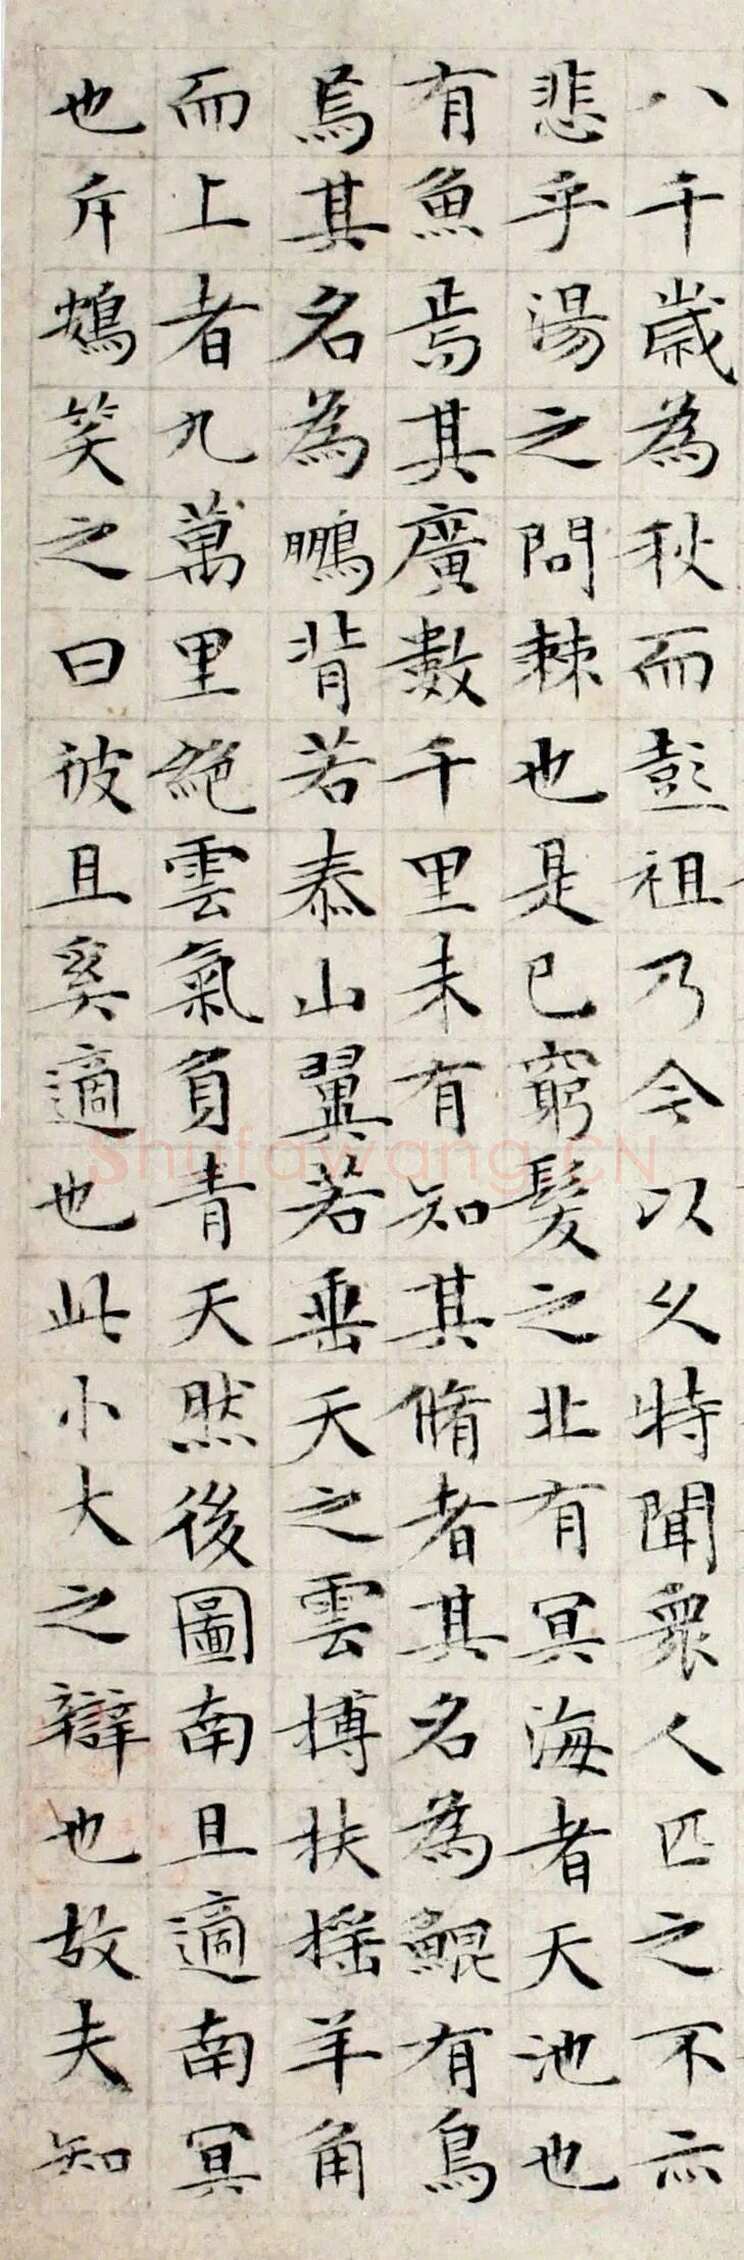 八千歲為秋而彭祖乃今以久特聞衆人匹之不亦
悲乎湯之問棘也是已窮髮之北有冥海者天池也
有魚焉其廣數千里未有知其脩者其名為鯤有鳥
焉其名為鵬背若泰山翼若垂天之雲搏扶搖羊角
而上者九萬里絕雲氣負青天然後圖南且適南冥
也斥鴳笑之曰彼且奚適也此小大之辯也故夫知
Shufawang.CN